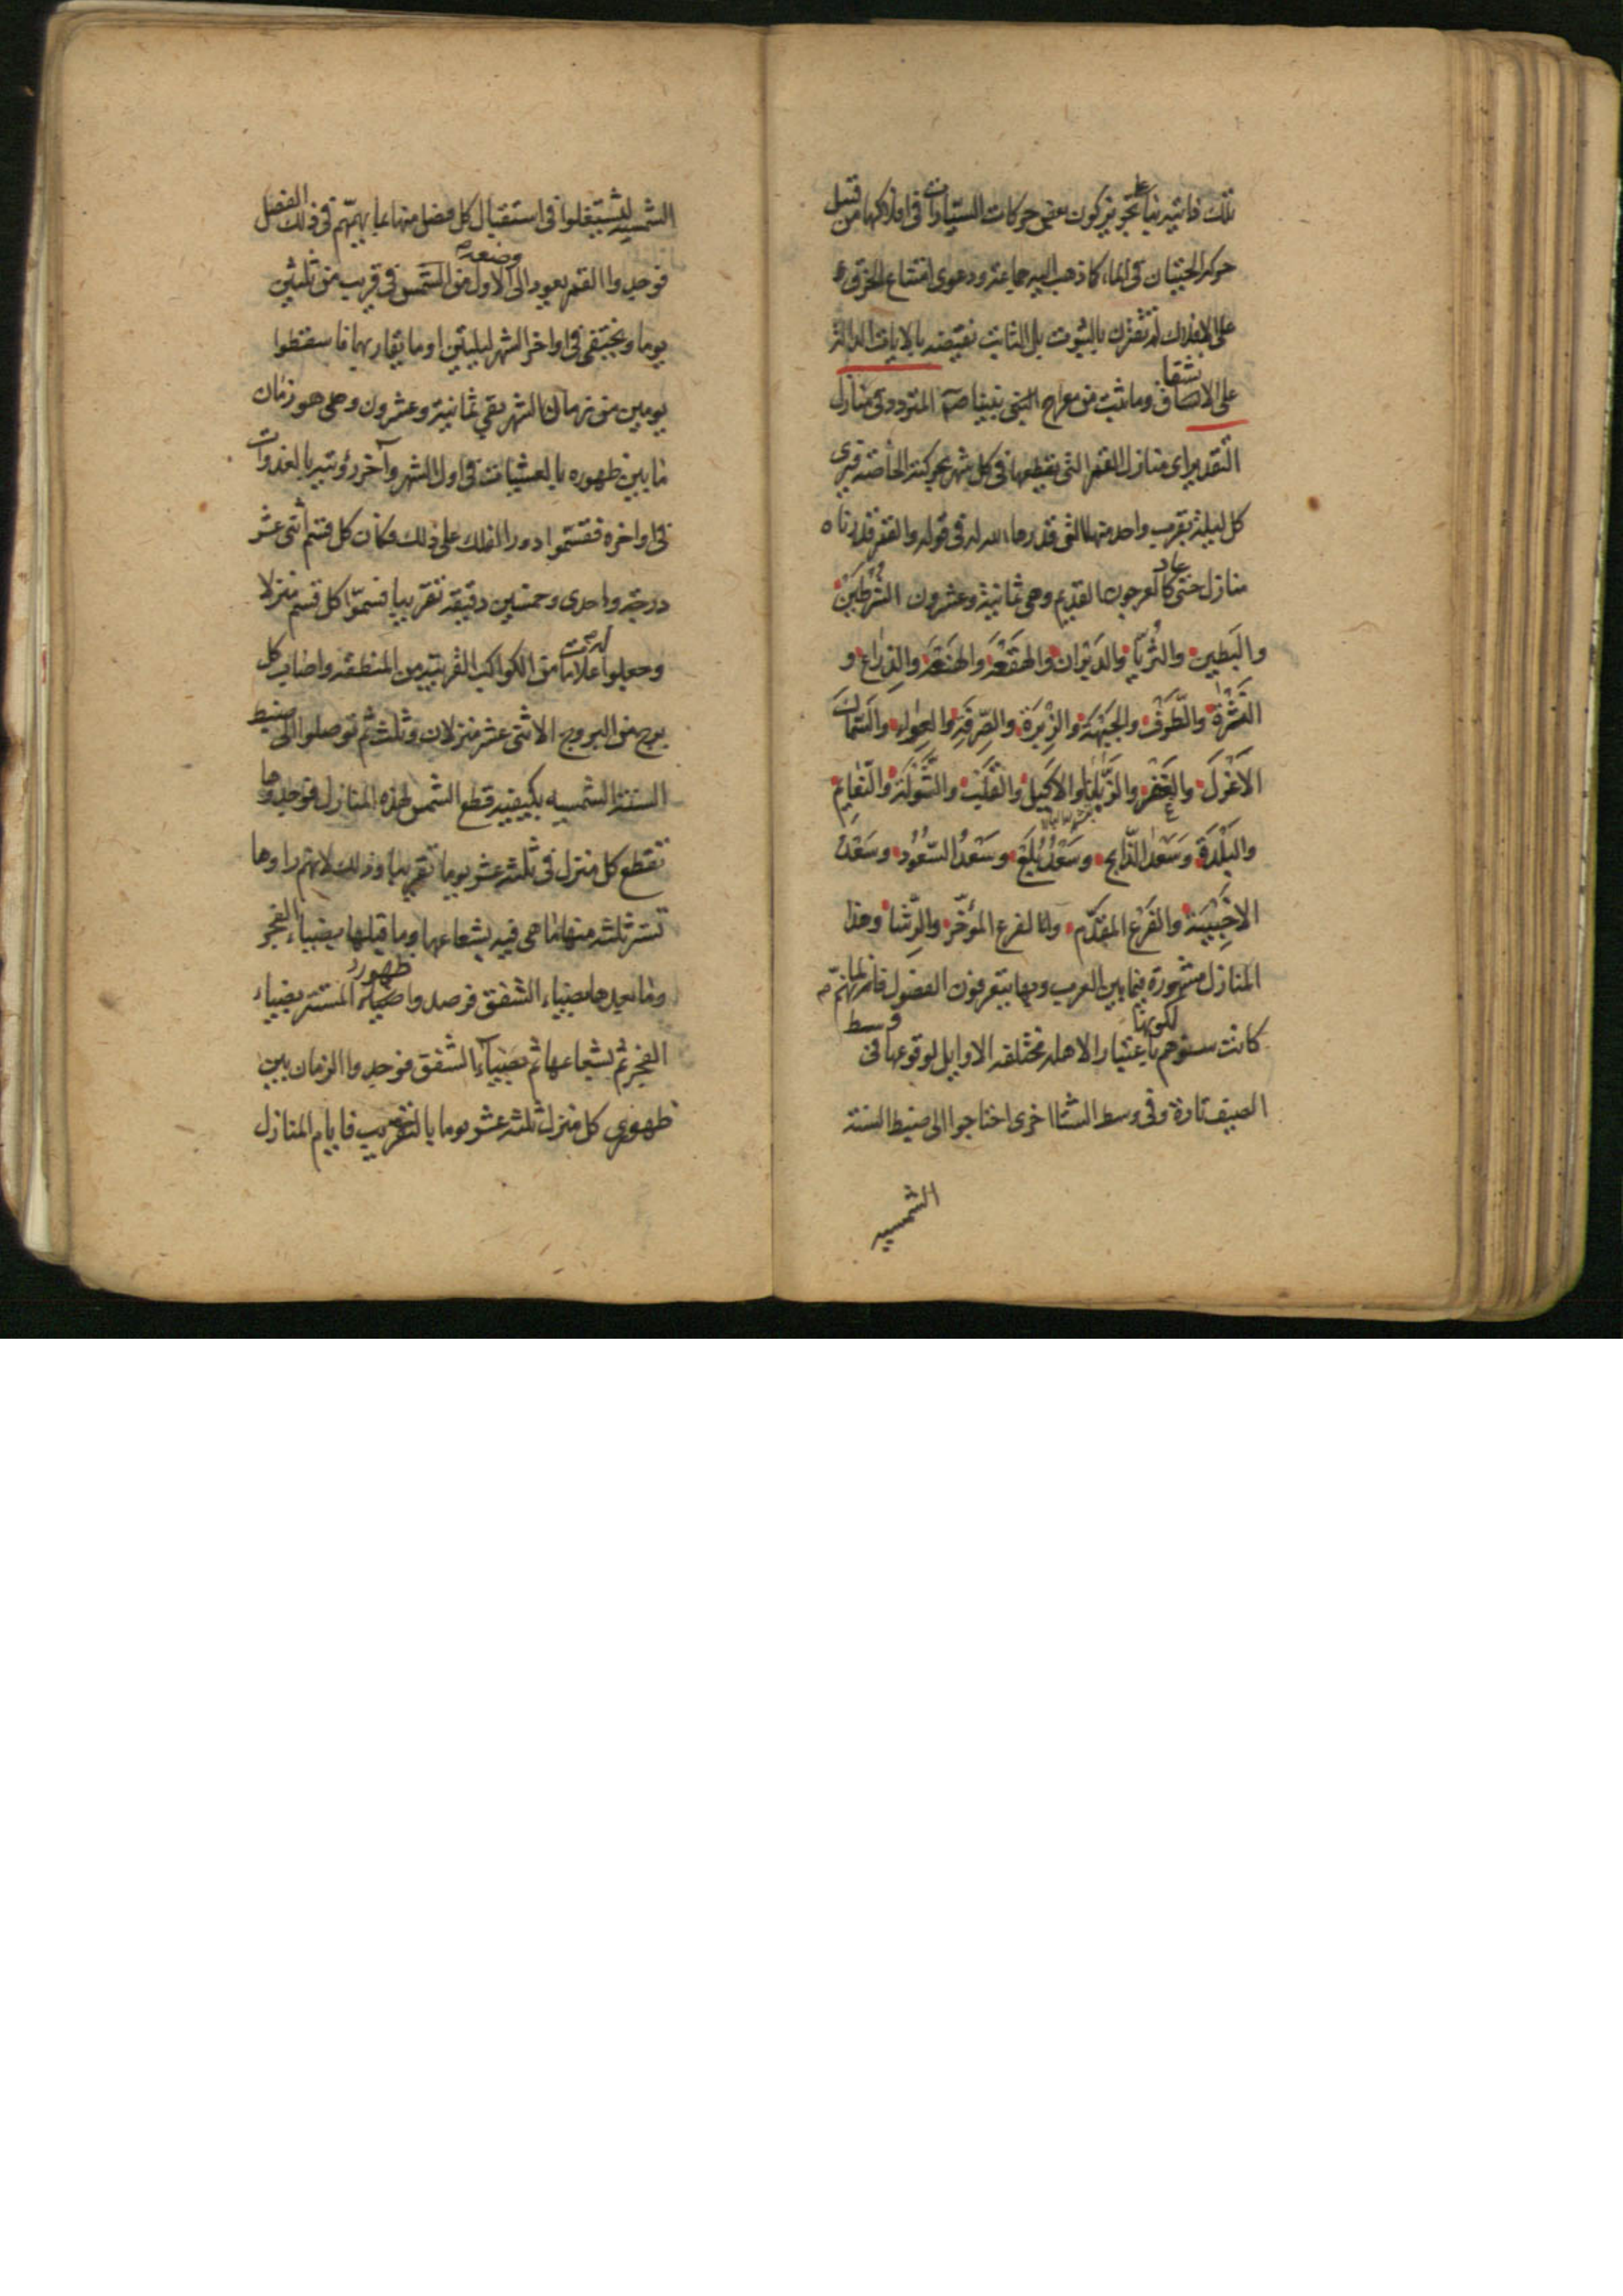 تلك فانتبه بناء على تجويز كون بعض حركات السيارات في افلاكها من قبيل
حركة الحيتان في الماء كما ذهب اليه جماعة ودعوى امتناع الخرق
على الافلاك لم تقترن بالثبوت بل الثابت نقيضه بالايات الدالة
على الانشقاق وما ثبت من معراج النبي نبينا صم المتردد في منازل
التقدير اى منازل القمر التى يقطعها في كل شهر بحركته الخاصة فيرى
كل ليلة بقرب واحد منها التى قدرها الله له في قوله والقمر قدرناه
منازل حتى عاد كالعرجون القديم وهى ثمانية وعشرون الشرطين
والبطين والثريا والدبران والهقعة والهنعة والذراع و
النثرة والطرف والجبهة والزبرة والصرفة والعواء والسماك
الاعزل والغفر والزبانا والاكليل والقلب والشولة والنعايم
والبلدة وسعد الذابح وسعد بلع وسعد السعود وسعد
الاخبية والفرع المقدم والفرع المؤخر والرشا وهذا
المنازل مشهورة فيما بين العرب وبها يتعرفون الفصول فانهم لما
كانت سنوهم لكونها باعتبار الاهلة مختلفة الاوايل لوقوعها في وسط
الصيف تارة وفي وسط الشتا اخرى احتاجوا الى ضبط السنة
الشمسيه
الشمسية ليشتغلوا في استقبال كل فصل منها بما يهمهم في ذلك الفصل
فوجدوا القمر يعود الى وضعه الاول من الشمس في قريب من ثلثين
يوما ويختفى في اواخر الشهر ليليتين او ما يقاربهما فاسقطوا
يومين من زمان الشهر بقي ثمانية وعشرون وهى هو زمان
ما بين ظهوره بالعشيات في اول الشهر وآخر رؤيته بالغدوات
في اواخره فقسموا دور الفلك على ذلك فكان كل قسم اثنى عشر
درجة واحدى وخمسين دقيقة تقريبا فسموا كل قسم منزلا
وجعلوا علامات من الكواكب القريبة من المنطقة واصاب كل
برج من البروج الاثنى عشر منزلان وثلث ثم توصلوا الى ضبط
السنة الشمسيه بكيفية قطع الشمس لهذه المنازل فوجدوها
تقطع كل منزل في ثلثة عشر يوما تقريبا وذلك لانهم راوها
تستر ثلثة منها ما هى فيه بشعاعها وما قبلها بضياء الفجر
وما بعدها بضياء الشفق فرصدوا ظهور المستتر بضياء
الفجر ثم بشعاعها ثم بضياء الشفق فوجدوا الزمان بين
ظهورى كل منزل ثلثة عشر يوما بالتقريب فايام المنازل